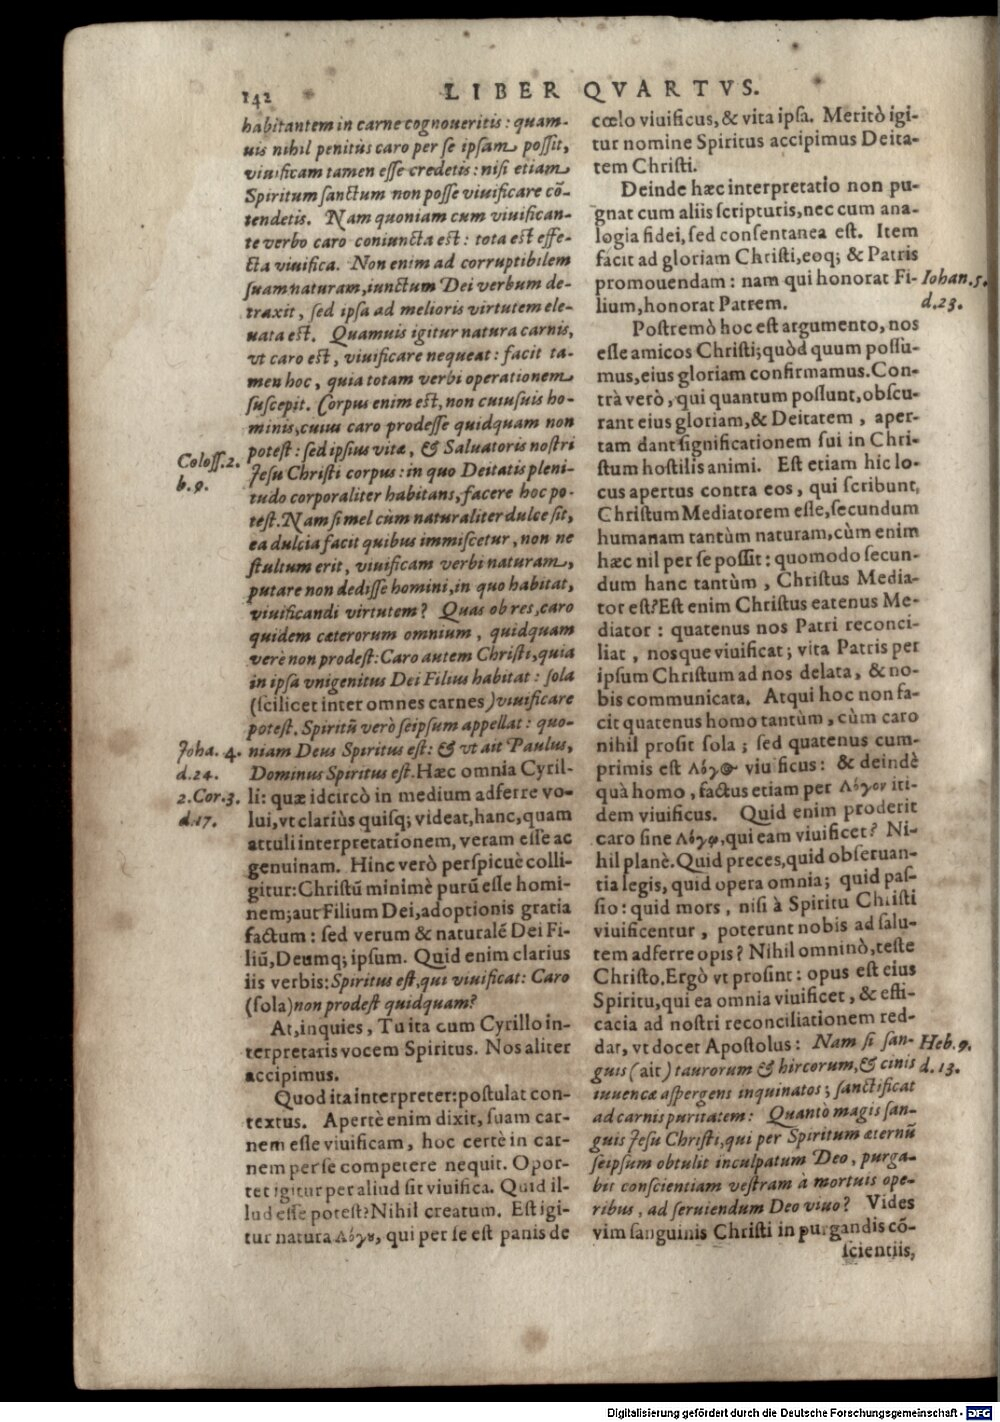 142
LIBER QVARTVS.
habitantem in carne cognoueritis: quam-
uis nihil penitùs caro per se ipsam possit,
viuificam tamen esse credetis: nisi etiam
Spiritum sanctum non posse viuificare cō-
tendetis. Nam quoniam cum viuifican-
te verbo caro coniuncta est: tota est effe-
cta viuifica. Non enim ad corruptibilem
suam naturam, iunctum Dei verbum de-
traxit, sed ipsa ad melioris virtutem ele-
uata est. Quamuis igitur natura carnis,
vt caro est, viuificare nequeat: facit ta-
men hoc, quia totam verbi operationem
suscepit. Corpus enim est, non cuiusuis ho-
minis, cuius caro prodesse quidquam non
potest: sed ipsius vitæ, & Saluatoris nostri
Coloss. 2.
b. 9.
Jesu Christi corpus: in quo Deitatis pleni-
tudo corporaliter habitans, facere hoc po-
test. Nam si mel cùm naturaliter dulce sit,
ea dulcia facit quibus immiscetur, non ne
stultum erit, viuificam verbi naturam,
putare non dedisse homini, in quo habitat,
viuificandi virtutem? Quas ob res, caro
quidem cæterorum omnium, quidquam
verè non prodest: Caro autem Christi, quia
in ipsa vnigenitus Dei Filius habitat: sola
(scilicet inter omnes carnes) viuificare
potest. Spiritū verò seipsum appellat: quo-
Joha. 4.
d. 24.
niam Deus Spiritus est: & vt ait Paulus,
Dominus Spiritus est. Hæc omnia Cyril-
2. Cor. 3.
d. 17.
li: quæ idcircò in medium adferre vo-
lui, vt clariùs quisq; videat, hanc, quam
attuli interpretationem, veram esse ac
genuinam. Hinc verò perspicuè colli-
gitur: Christū minimè purū esse homi-
nem; aut Filium Dei, adoptionis gratia
factum: sed verum & naturalē Dei Fi-
liū, Deumq; ipsum. Quid enim clarius
iis verbis: Spiritus est, qui viuificat: Caro
(sola) non prodest quidquam?
At, inquies, Tu ita cum Cyrillo in-
terpretaris vocem Spiritus. Nos aliter
accipimus.
Quod ita interpreter: postulat con-
textus. Apertè enim dixit, suam car-
nem esse viuificam, hoc certè in car-
nem per se competere nequit. Opor-
tet igitur per aliud sit viuifica. Quid il-
lud esse potest? Nihil creatum. Est igi-
tur natura Λόγου, qui per se est panis de
cœlo viuificus, & vita ipsa. Meritò igi-
tur nomine Spiritus accipimus Deita-
tem Christi.
Deinde hæc interpretatio non pu-
gnat cum aliis scripturis, nec cum ana-
logia fidei, sed consentanea est. Item
facit ad gloriam Christi, eoq; & Patris
promouendam: nam qui honorat Fi-
lium, honorat Patrem.
Iohan. 5.
d. 23.
Postremò hoc est argumento, nos
esse amicos Christi; quòd quum possu-
mus, eius gloriam confirmamus. Con-
trà verò, qui quantum possunt, obscu-
rant eius gloriam, & Deitatem, aper-
tam dant significationem sui in Chri-
stum hostilis animi. Est etiam hic lo-
cus apertus contra eos, qui scribunt,
Christum Mediatorem esse, secundum
humanam tantùm naturam, cùm enim
hæc nil per se possit: quomodo secun-
dum hanc tantùm, Christus Media-
tor est? Est enim Christus eatenus Me-
diator: quatenus nos Patri reconci-
liat, nosque viuificat; vita Patris per
ipsum Christum ad nos delata, & no-
bis communicata. Atqui hoc non fa-
cit quatenus homo tantùm, cùm caro
nihil prosit sola; sed quatenus cum-
primis est Λόγος viuificus: & deindè
quà homo, factus etiam per Λόγον iti-
dem viuificus. Quid enim proderit
caro sine Λόγῳ, qui eam viuificet? Ni-
hil planè. Quid preces, quid obseruan-
tia legis, quid opera omnia; quid pas-
sio: quid mors, nisi à Spiritu Christi
viuificentur, poterunt nobis ad salu-
tem adferre opis? Nihil omninò, teste
Christo. Ergò vt prosint: opus est eius
Spiritu, qui ea omnia viuificet, & effi-
cacia ad nostri reconciliationem red-
dat, vt docet Apostolus: Nam si san-
Heb. 9.
d. 13.
guis (ait) taurorum & hircorum, & cinis
iuuencæ aspergens inquinatos; sanctificat
ad carnis puritatem: Quantò magis san-
guis Jesu Christi, qui per Spiritum æternū
seipsum obtulit inculpatum Deo, purga-
bit conscientiam vestram à mortuis ope-
ribus, ad seruiendum Deo viuo? Vides
vim sanguinis Christi in purgandis cō-
scientiis,
Digitalisierung gefördert durch die Deutsche Forschungsgemeinschaft - DFG